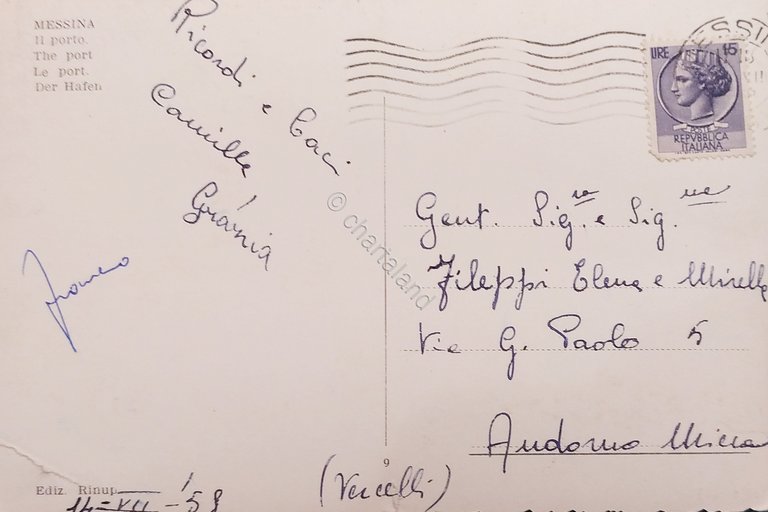 MESSINA
Il porto.
The port
Le port.
Der Hafen
Ricordi e baci
Camilla
Grazia
Franco
Ediz. Rinup
14-VII-'58
9
LIRE 15
POSTE
REPVBBLICA
ITALIANA
Gent. Sig.re e Sig.
Fileppi Elena e Mirella
Via G. Paolo 5
Andorno Micca
(Vercelli)
© chartaland